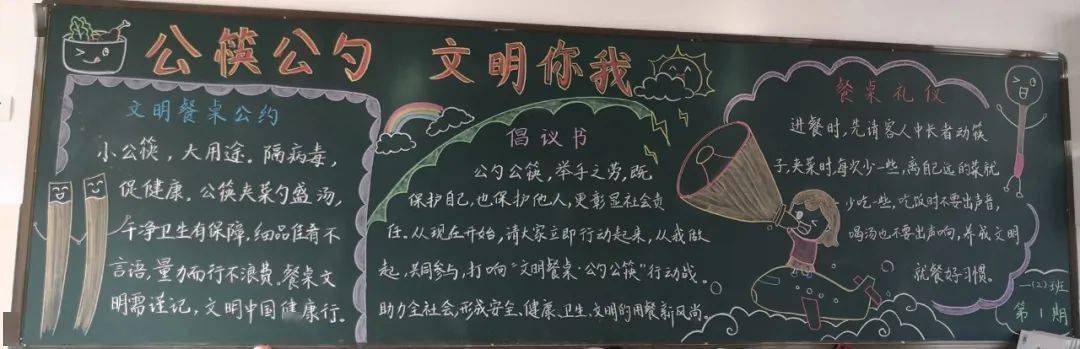 公筷公勺 文明你我
文明餐桌公约
小公筷，大用途。隔病毒，
促健康。公筷夹菜勺盛汤，
干净卫生有保障。细品佳肴不
言语，量力而行不浪费。餐桌文
明需谨记，文明中国健康行。
倡议书
公勺公筷，举手之劳，既
保护自己，也保护他人，更彰显社会责
任。从现在开始，请大家立即行动起来，从我做
起，共同参与，打响“文明餐桌·公勺公筷”行动战。
助力全社会形成安全、健康、卫生、文明的用餐新风尚。
餐桌礼仪
进餐时，先请客人中长者动筷
子，夹菜时每次少一些，离自己远的菜就
少吃一些，吃饭时不要出声音，
喝汤也不要出声响，养成文明
就餐好习惯。
一(2)班
第1期